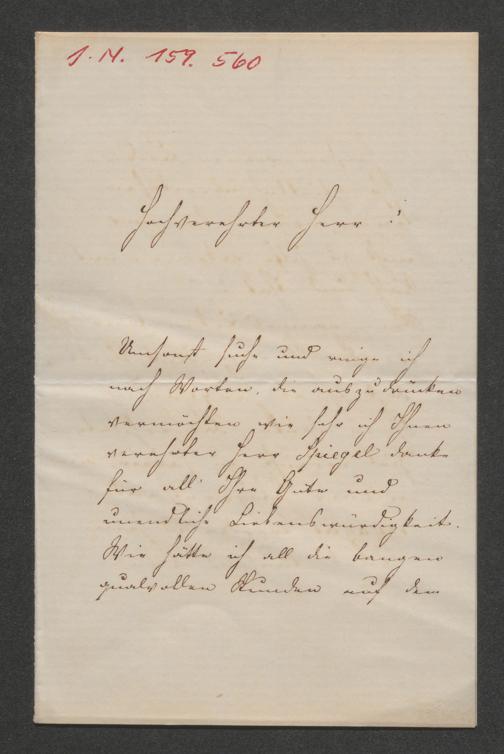 J. N. 159.560
Hochverehrter Herr!
Umsonst suche und ringe ich
nach Worten, die auszudrücken
vermöchten wie sehr ich Ihnen
verehrter Herr Spiegel danke
für all' Ihre Güte und
unendliche Liebenswürdigkeit.
Wie hätte ich all die bangen
qualvollen Stunden auf dem